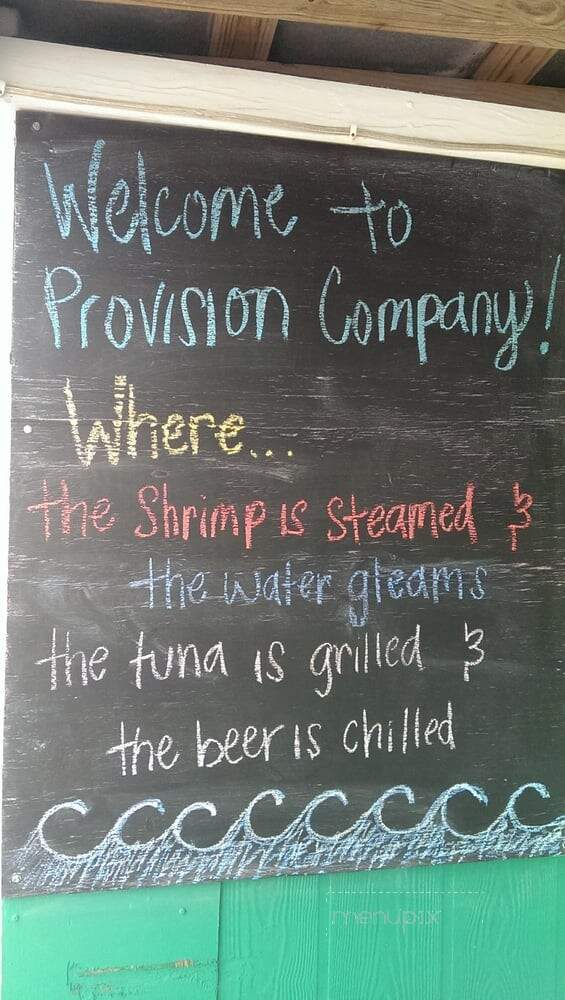 Welcome to
Provision Company!
Where...
the Shrimp is Steamed &
the water gleams
the tuna is grilled &
the beer is chilled
menupix